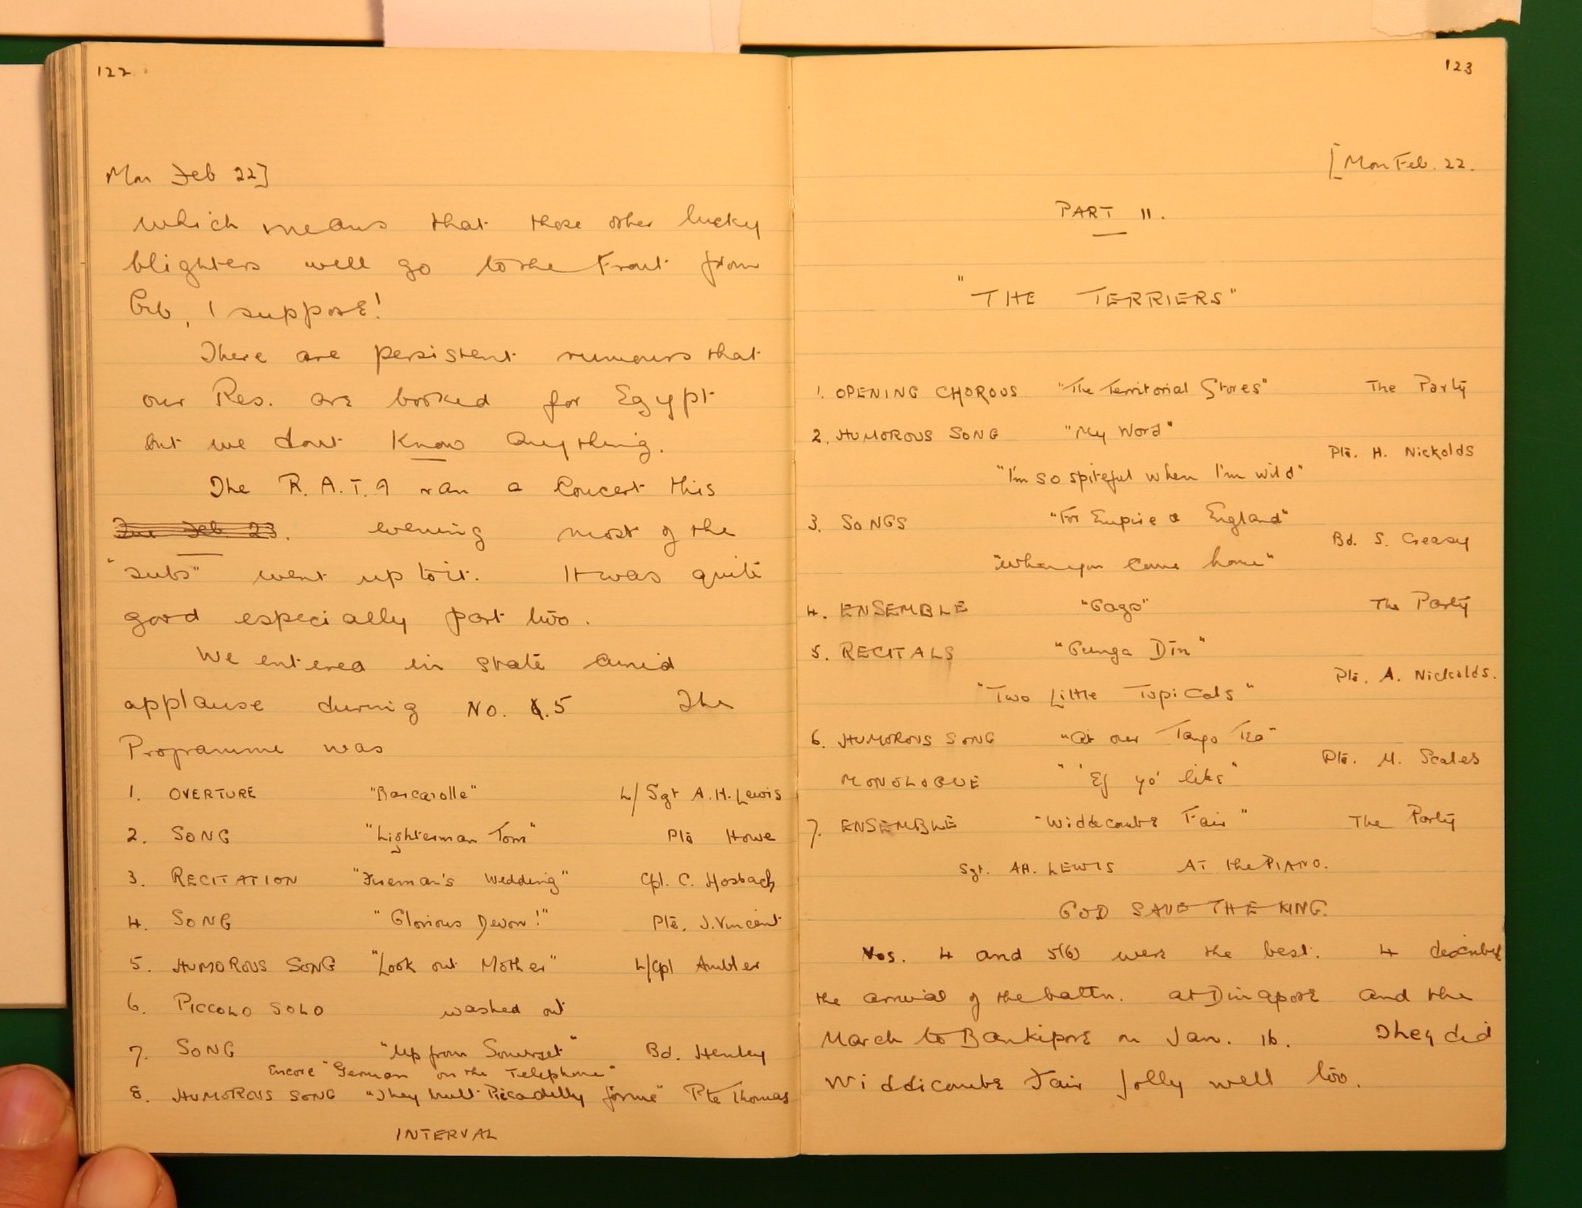 122
Mon Feb 22]
which means that those other lucky
blighters will go to the Front from
Gib, I suppose!
There are persistent rumours that
our Res. are booked for Egypt
but we dont know anything.
The R.A.T.A ran a Concert this
Tue Feb 23. evening most of the
"subs" went up to it. It was quite
good especially part two.
We entered in state amid
applause during No. 5 The
Programme was
1. OVERTURE "Barcarolle" L/Sgt A.H. Lewis
2. SONG "Lighterman Tom" Pte Howe
3. RECITATION "Fireman's Wedding" Cpl. C. Hosbach
4. SONG "Glorious Devon!" Pte. J. Vincent
5. HUMOROUS SONG "Look out Mother" L/Cpl Ambler
6. PICCOLO SOLO washed out
7. SONG "Up from Somerset" Bd. Henley
Encore "German on the Telephone"
8. HUMOROUS SONG "They built Piccadilly for me" Pte Thomas
INTERVAL
123
[Mon Feb. 22.
PART II.
"THE TERRIERS"
1. OPENING CHOROUS "The Territorial Stores" The Party
2. HUMOROUS SONG "My Word"
Pte. H. Nickolds
"I'm so spiteful when I'm wild"
3. SONGS "For Empire & England"
Bd. S. Creasy
"When you come home"
4. ENSEMBLE "Gags" The Party
5. RECITALS "Gunga Din"
Pte. A. Nickolds.
"Two Little Topicals"
6. HUMOROUS SONG "At our Tango Tea"
Pte. M. Scales
MONOLOGUE "'Ef yo' like"
7. ENSEMBLE "Widdecombe Fair" The Party
Sgt. AH. LEWIS AT the PIANO.
GOD SAVE THE KING.
Nos. 4 and 5(6) were the best. 4 described
the arrival of the battn. at Dinapore and the
March to Bankipore on Jan. 16. They did
Widdicombe Fair jolly well too.